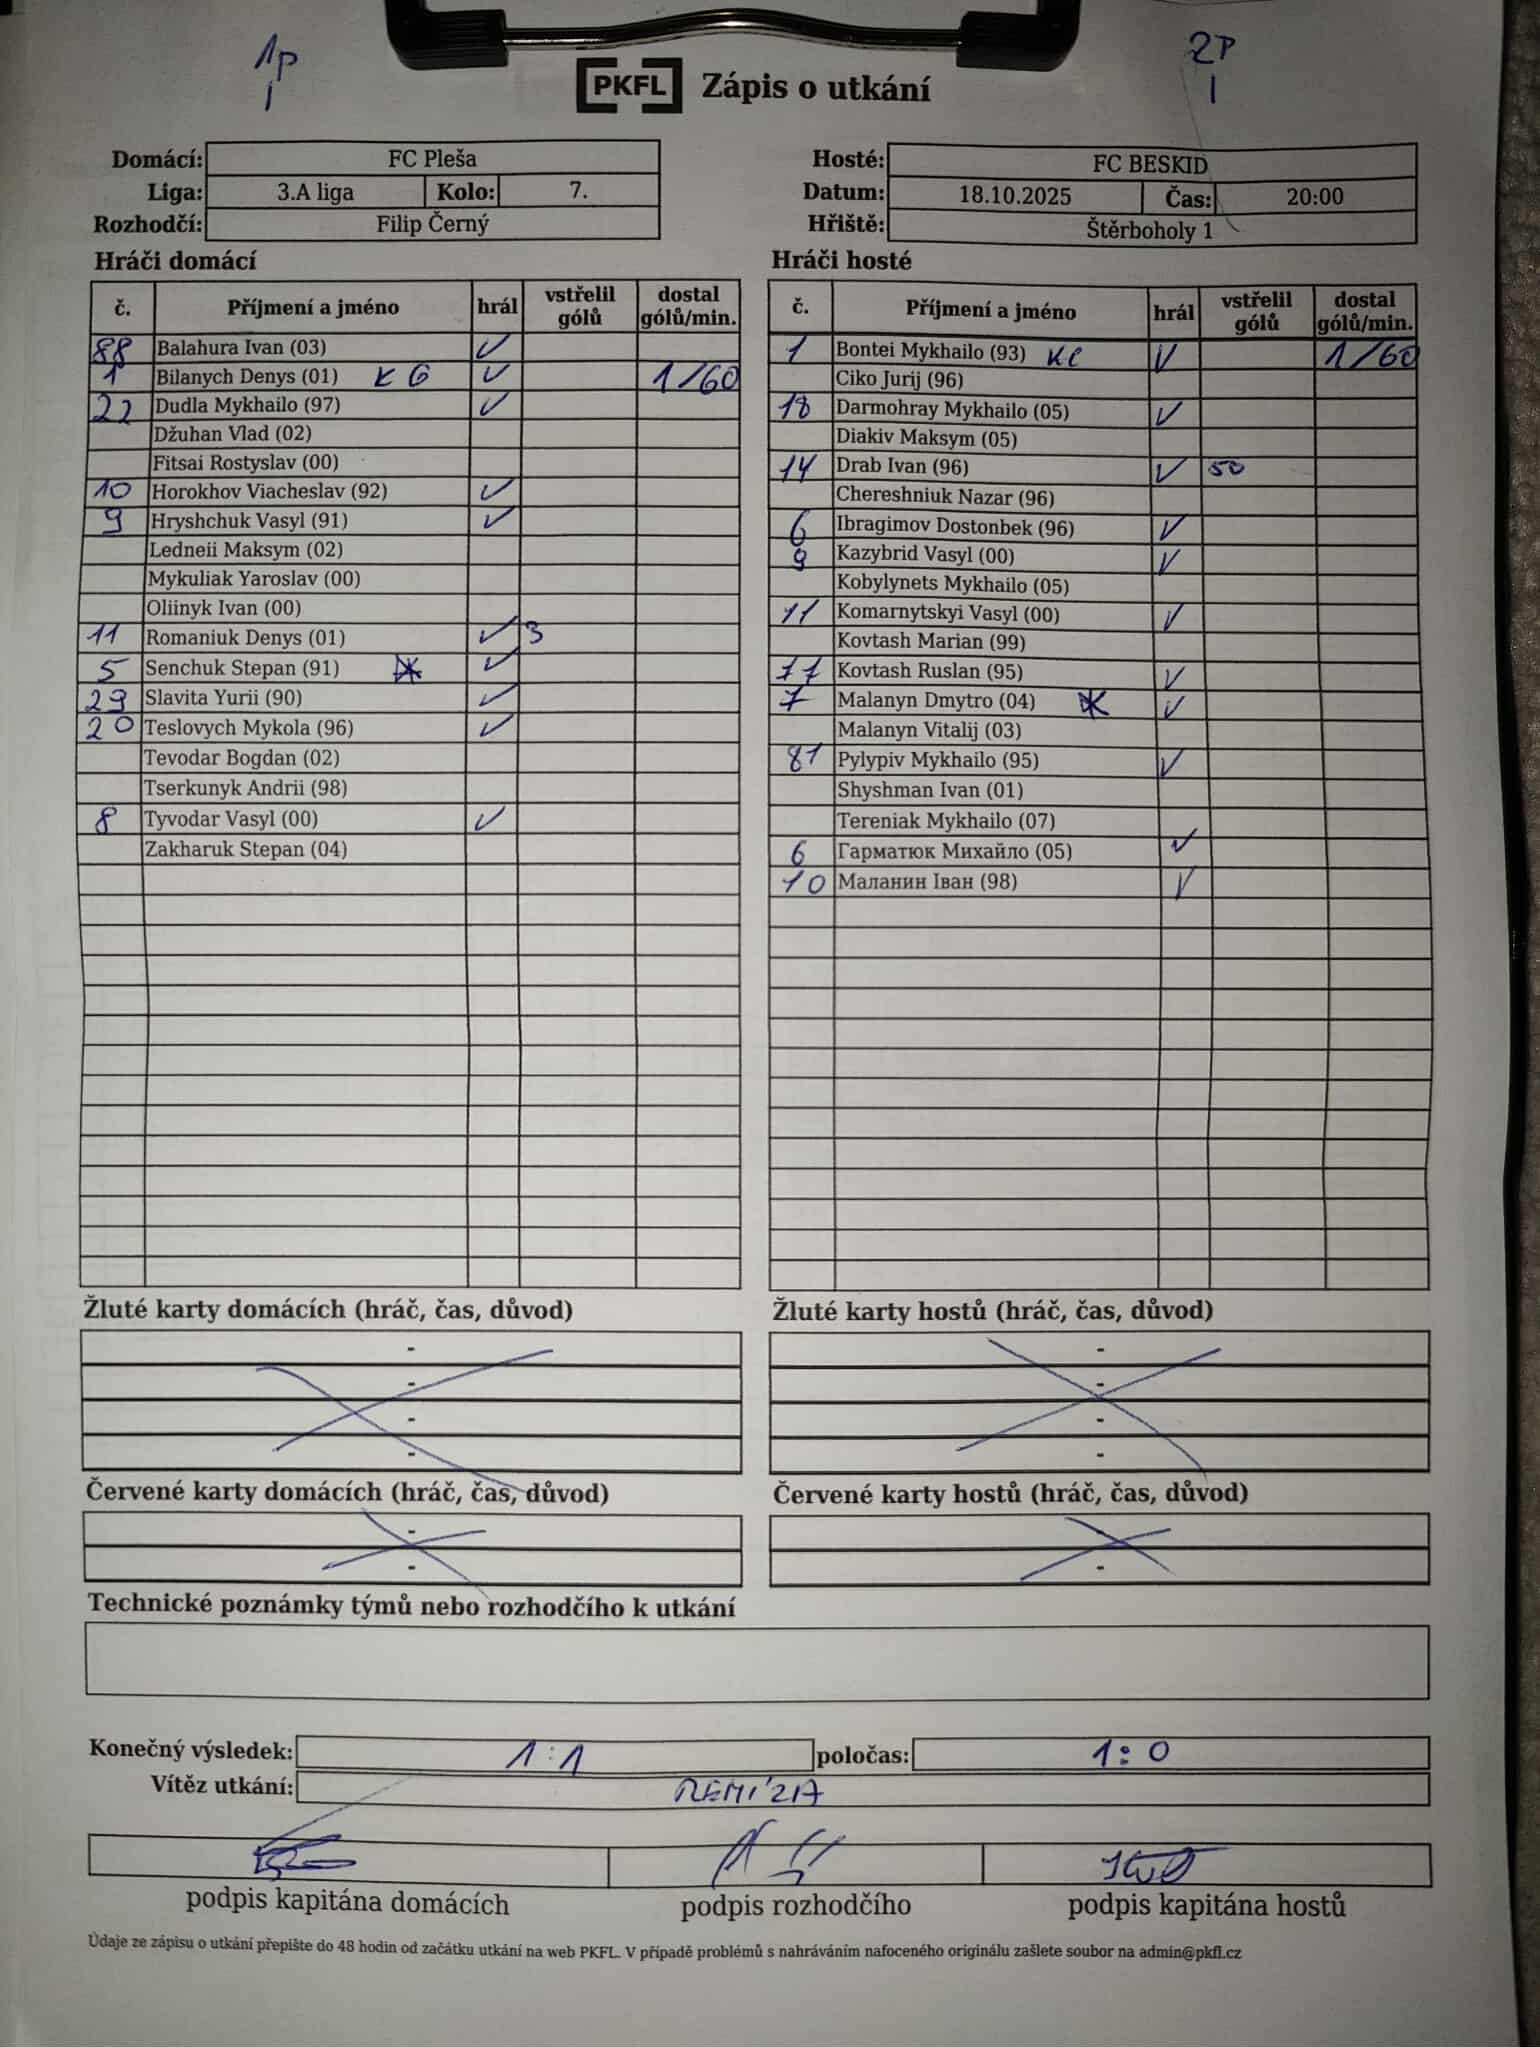 1p
2P
1
1
PKFL Zápis o utkání
Domácí: FC Pleša
Liga: 3.A liga Kolo: 7.
Rozhodčí: Filip Černý
Hosté: FC BESKID
Datum: 18.10.2025 Čas: 20:00
Hřiště: Štěrboholy 1
Hráči domácí
č. Příjmení a jméno hrál vstřelil gólů dostal gólů/min.
88 Balahura Ivan (03) ✓
1 Bilanych Denys (01) K G ✓ 1/60
22 Dudla Mykhailo (97) ✓
Džuhan Vlad (02)
Fitsai Rostyslav (00)
10 Horokhov Viacheslav (92) ✓
9 Hryshchuk Vasyl (91) ✓
Ledneii Maksym (02)
Mykuliak Yaroslav (00)
Oliinyk Ivan (00)
11 Romaniuk Denys (01) ✓ 3
5 Senchuk Stepan (91) ✓
29 Slavita Yurii (90) ✓
20 Teslovych Mykola (96) ✓
Tevodar Bogdan (02)
Tserkunyk Andrii (98)
8 Tyvodar Vasyl (00) ✓
Zakharuk Stepan (04)
Hráči hosté
č. Příjmení a jméno hrál vstřelil gólů dostal gólů/min.
1 Bontei Mykhailo (93) ✓ 1/60
Ciko Jurij (96)
18 Darmohray Mykhailo (05) ✓
Diakiv Maksym (05)
14 Drab Ivan (96) ✓ 50
Chereshniuk Nazar (96)
6 Ibragimov Dostonbek (96) ✓
9 Kazybrid Vasyl (00) ✓
Kobylynets Mykhailo (05)
11 Komarnytskyi Vasyl (00) ✓
Kovtash Marian (99)
77 Kovtash Ruslan (95) ✓
7 Malanyn Dmytro (04) ✓
Malanyn Vitalij (03)
81 Pylypiv Mykhailo (95) ✓
Shyshman Ivan (01)
Tereniak Mykhailo (07)
6 Гарматюк Михайло (05) ✓
10 Маланин Іван (98) ✓
Žluté karty domácích (hráč, čas, důvod)
-
-
-
-
Žluté karty hostů (hráč, čas, důvod)
-
-
-
-
Červené karty domácích (hráč, čas, důvod)
-
-
Červené karty hostů (hráč, čas, důvod)
-
-
Technické poznámky týmů nebo rozhodčího k utkání
Konečný výsledek: 1:1 poločas: 1:0
Vítěz utkání: REMÍZA
podpis kapitána domácích podpis rozhodčího podpis kapitána hostů
Údaje ze zápisu o utkání přepište do 48 hodin od začátku utkání na web PKFL. V případě problémů s nahráváním nafoceného originálu zašlete soubor na admin@pkfl.cz